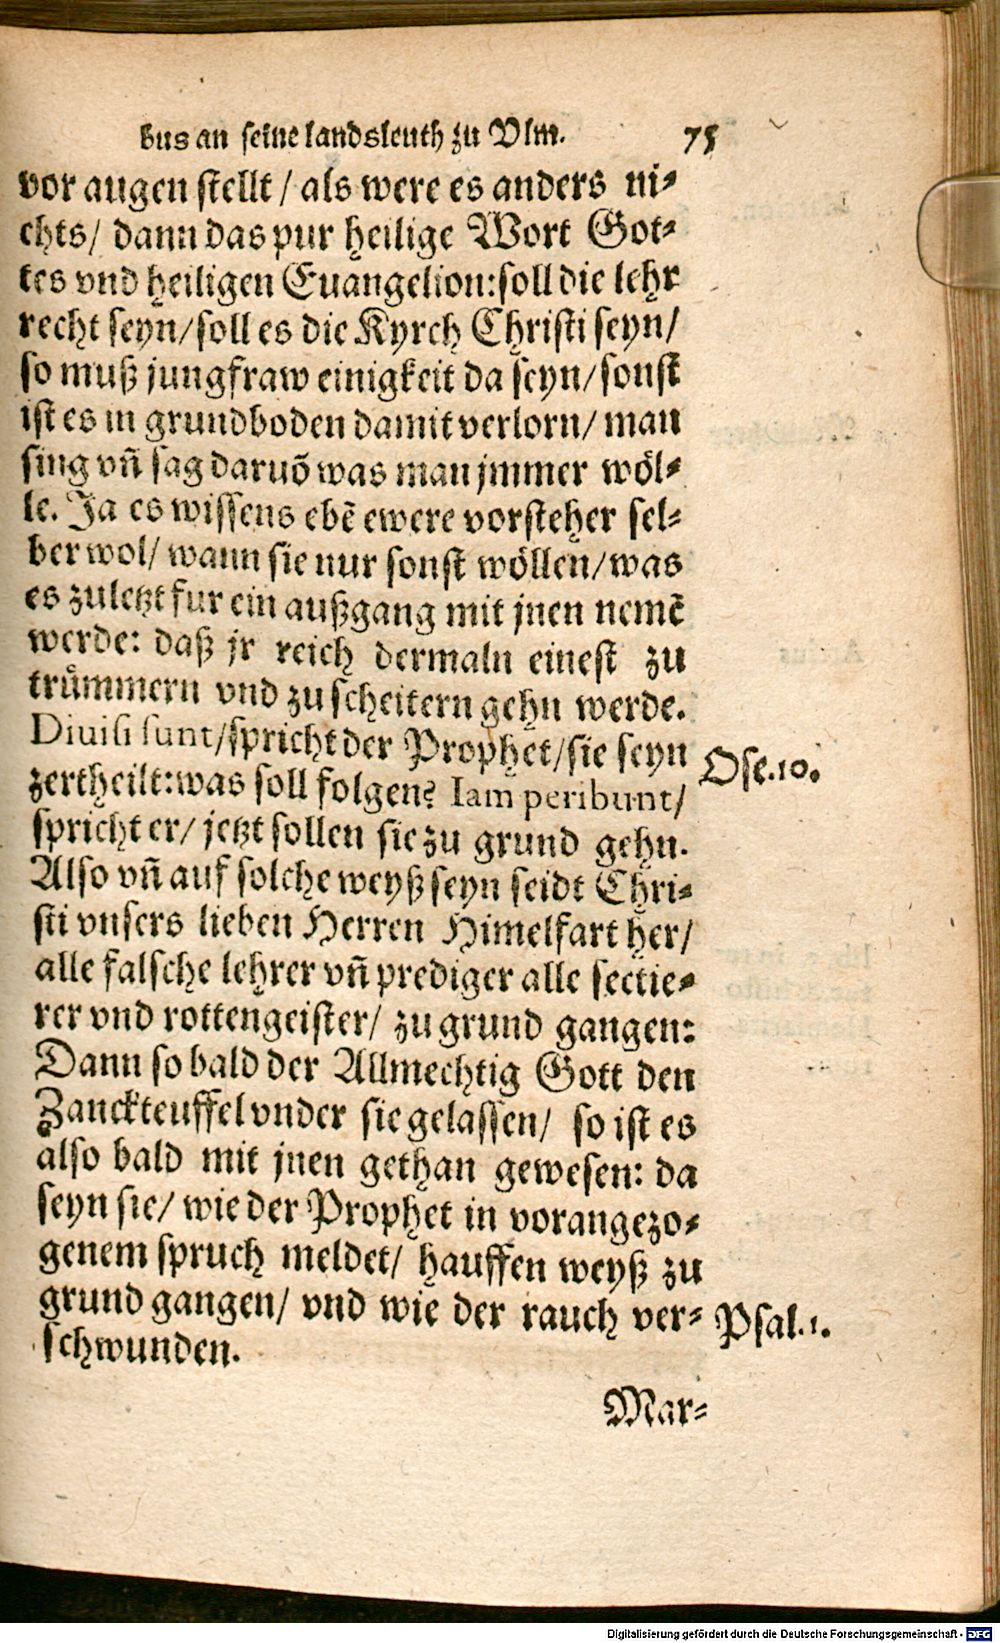 bus an seine landsleuth zu Vlm. 75
vor augen stellt / als were es anders ni⸗
chts/ dann das pur heilige Wort Got⸗
tes vnd heiligen Euangelion: soll die lehr
recht seyn/ soll es die Kyrch Christi seyn/
so muß jungfraw einigkeit da seyn/ sonst
ist es in grundboden damit verlorn/ man
sing vñ sag daruō was man jmmer wöl⸗
le. Ja es wissens ebē ewere vorsteher sel⸗
ber wol/ wann sie nur sonst wöllen/ was
es zuletzt fur ein außgang mit jnen nemē
werde: daß jr reich dermaln einest zu
trümmern vnd zu scheitern gehn werde.
Diuisi sunt/ spricht der Prophet/ sie seyn
zertheilt: was soll folgen? Iam peribunt/
spricht er/ jetzt sollen sie zu grund gehn.
Ose.10.
Also vñ auf solche weyß seyn seidt Chri⸗
sti vnsers lieben Herren Himelfart her/
alle falsche lehrer vñ prediger alle sectie⸗
rer vnd rottengeister/ zu grund gangen:
Dann so bald der Allmechtig Gott den
Zanckteuffel vnder sie gelassen/ so ist es
also bald mit jnen gethan gewesen: da
seyn sie/ wie der Prophet in vorangezo⸗
genem spruch meldet/ hauffen weyß zu
grund gangen/ vnd wie der rauch ver⸗
schwunden.
Psal.1.
Mar⸗
Digitalisierung gefördert durch die Deutsche Forschungsgemeinschaft - DFG